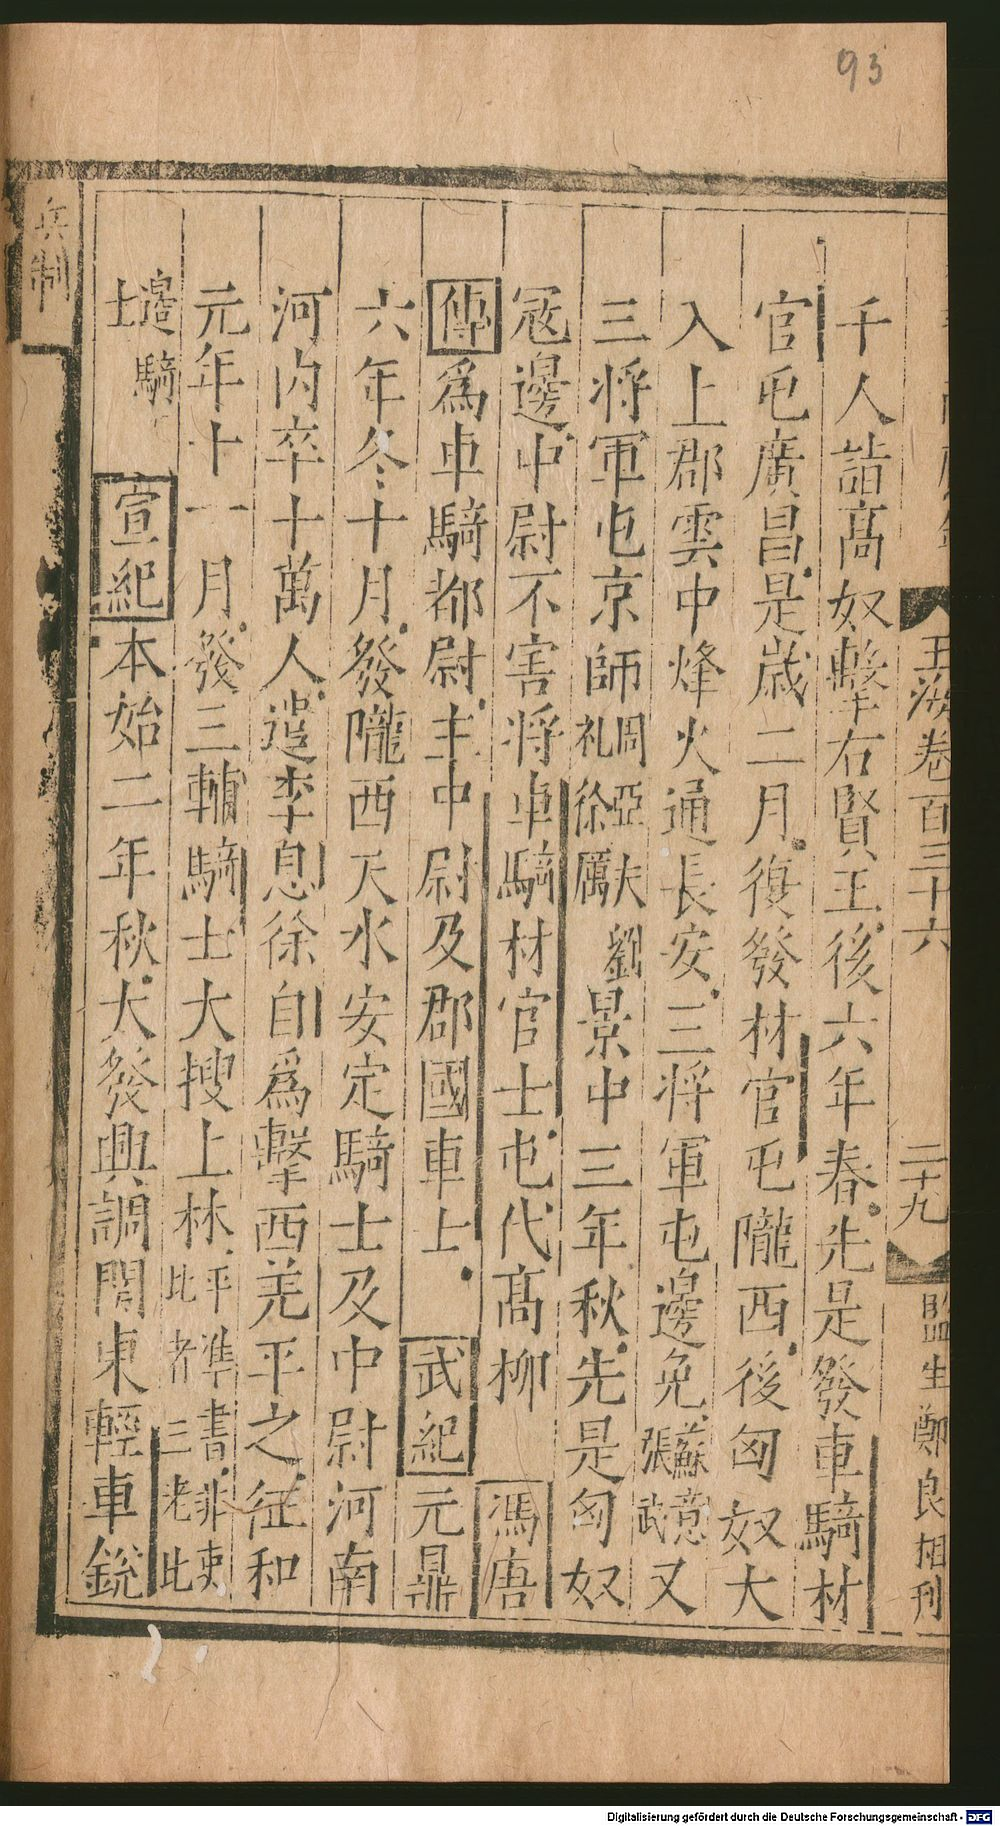 93
玉海卷百三十六
二十九
監生鄭良相刊
千人詣高奴擊右賢王後六年春先是發車騎材
官屯廣昌是歲二月復發材官屯隴西後匈奴大
入上郡雲中烽火通長安三將軍屯邊免蘇意張武又
三將軍屯京師周亞夫劉礼徐厲景中三年秋先是匈奴
寇邊中尉不害將車騎材官士屯代高柳馮唐
傳為車騎都尉主中尉及郡國車士武紀元鼎
六年冬十月發隴西天水安定騎士及中尉河南
河內卒十萬人遣李息徐自為擊西羌平之征和
元年十一月發三輔騎士大搜上林平準書非吏比者三老北
邊騎士宣紀本始二年秋大發興調關東輕車銳
兵制
Digitalisierung gefördert durch die Deutsche Forschungsgemeinschaft - DFG